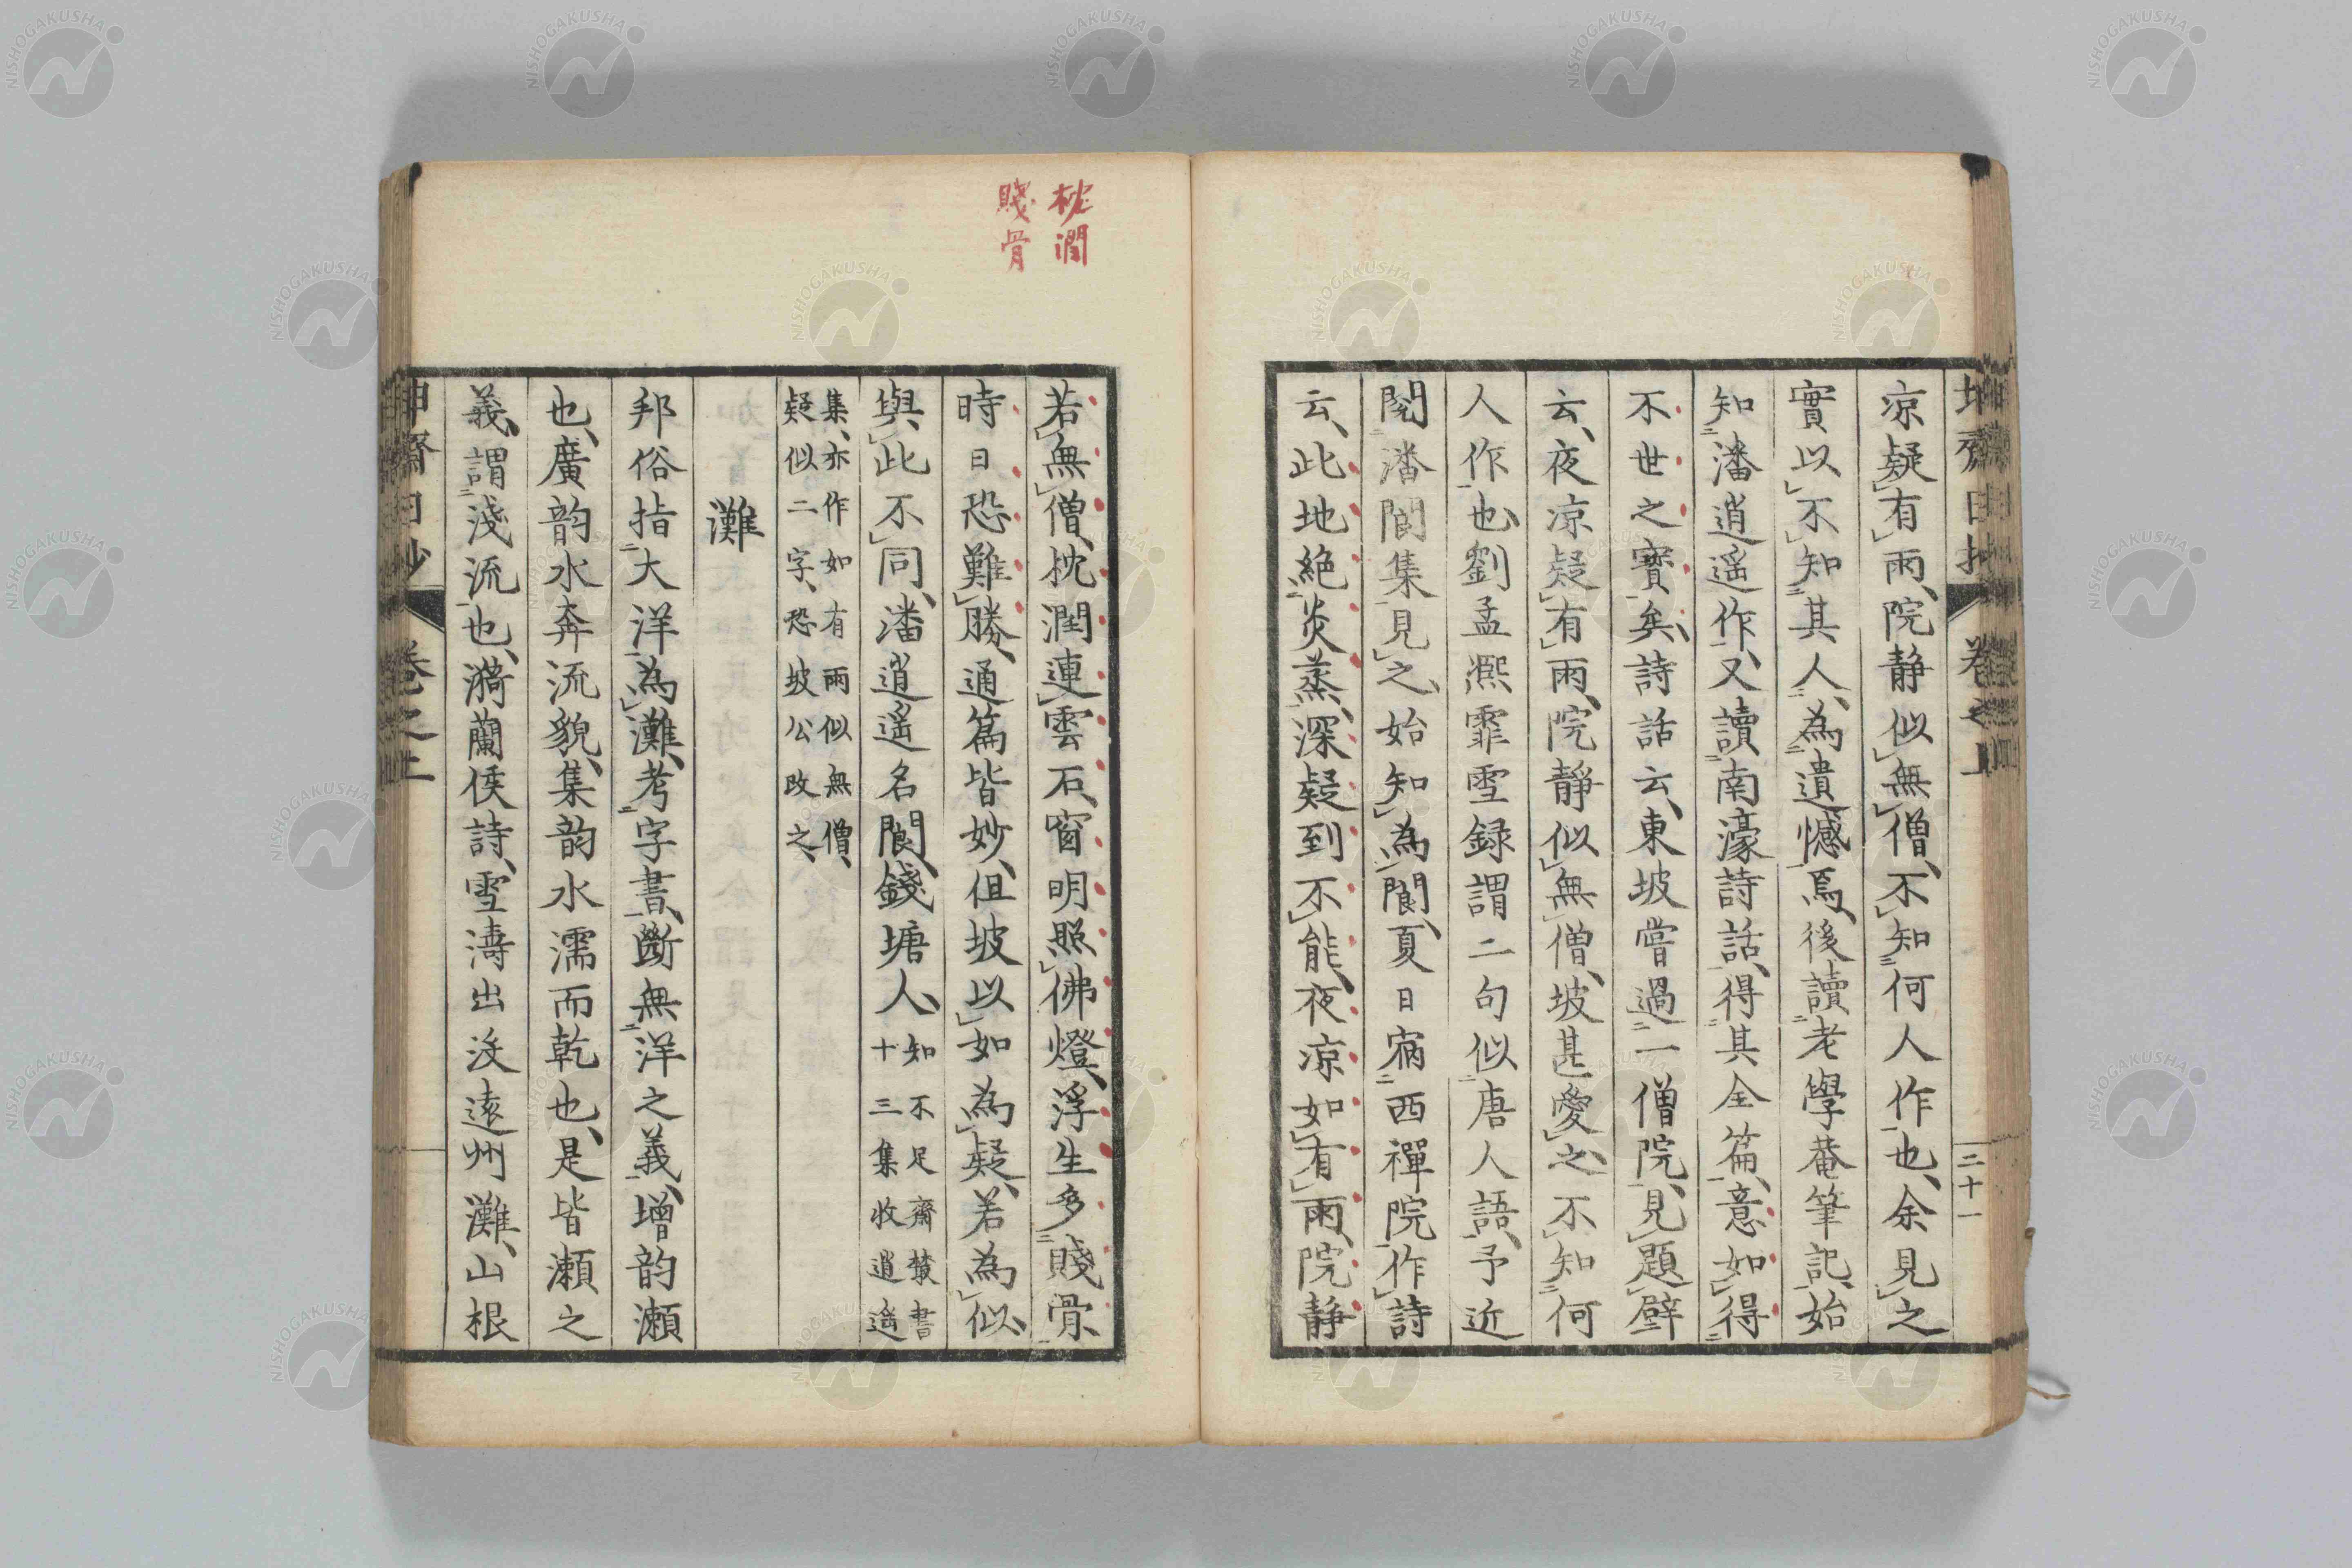 凉疑有雨、院静似無僧、不知何人作也、余見之
實以不知其人、為遺憾焉、後讀老學菴筆記、始
知潘逍遥作、又讀南濠詩話、得其全篇、意如得
不世之寶矣、詩話云、東坡嘗過一僧院、見題壁
云、夜凉疑有雨、院靜似無僧、坡甚愛之、不知何
人作也、劉孟熙霏雪録謂二句似唐人語、予近
閱潘閬集見之、始知為閬、夏日宿西禪院作、詩
云、此地絶炎蒸、深疑到不能、夜凉如有雨、院静
若無僧、枕潤連雲石、窗明照佛燈、浮生多賤骨
時日恐難勝、通篇皆妙、但坡以如為疑、若為似、
與此不同、潘逍遥名閬、錢塘人、知不足齋叢書
十三集收逍遥
集、亦作如有雨似無僧、
疑似二字、恐坡公改之、
灘
邦俗指大洋為灘、考字書、斷無洋之義、增韵瀬
也、廣韵水奔流貌、集韵水濡而乾也、是皆瀬之
義、謂淺流也、漪蘭侯詩、雪濤出没遠州灘、山根
枕潤
賤骨
卷之上
二十一
卷之上
NISHOGAKUSHA